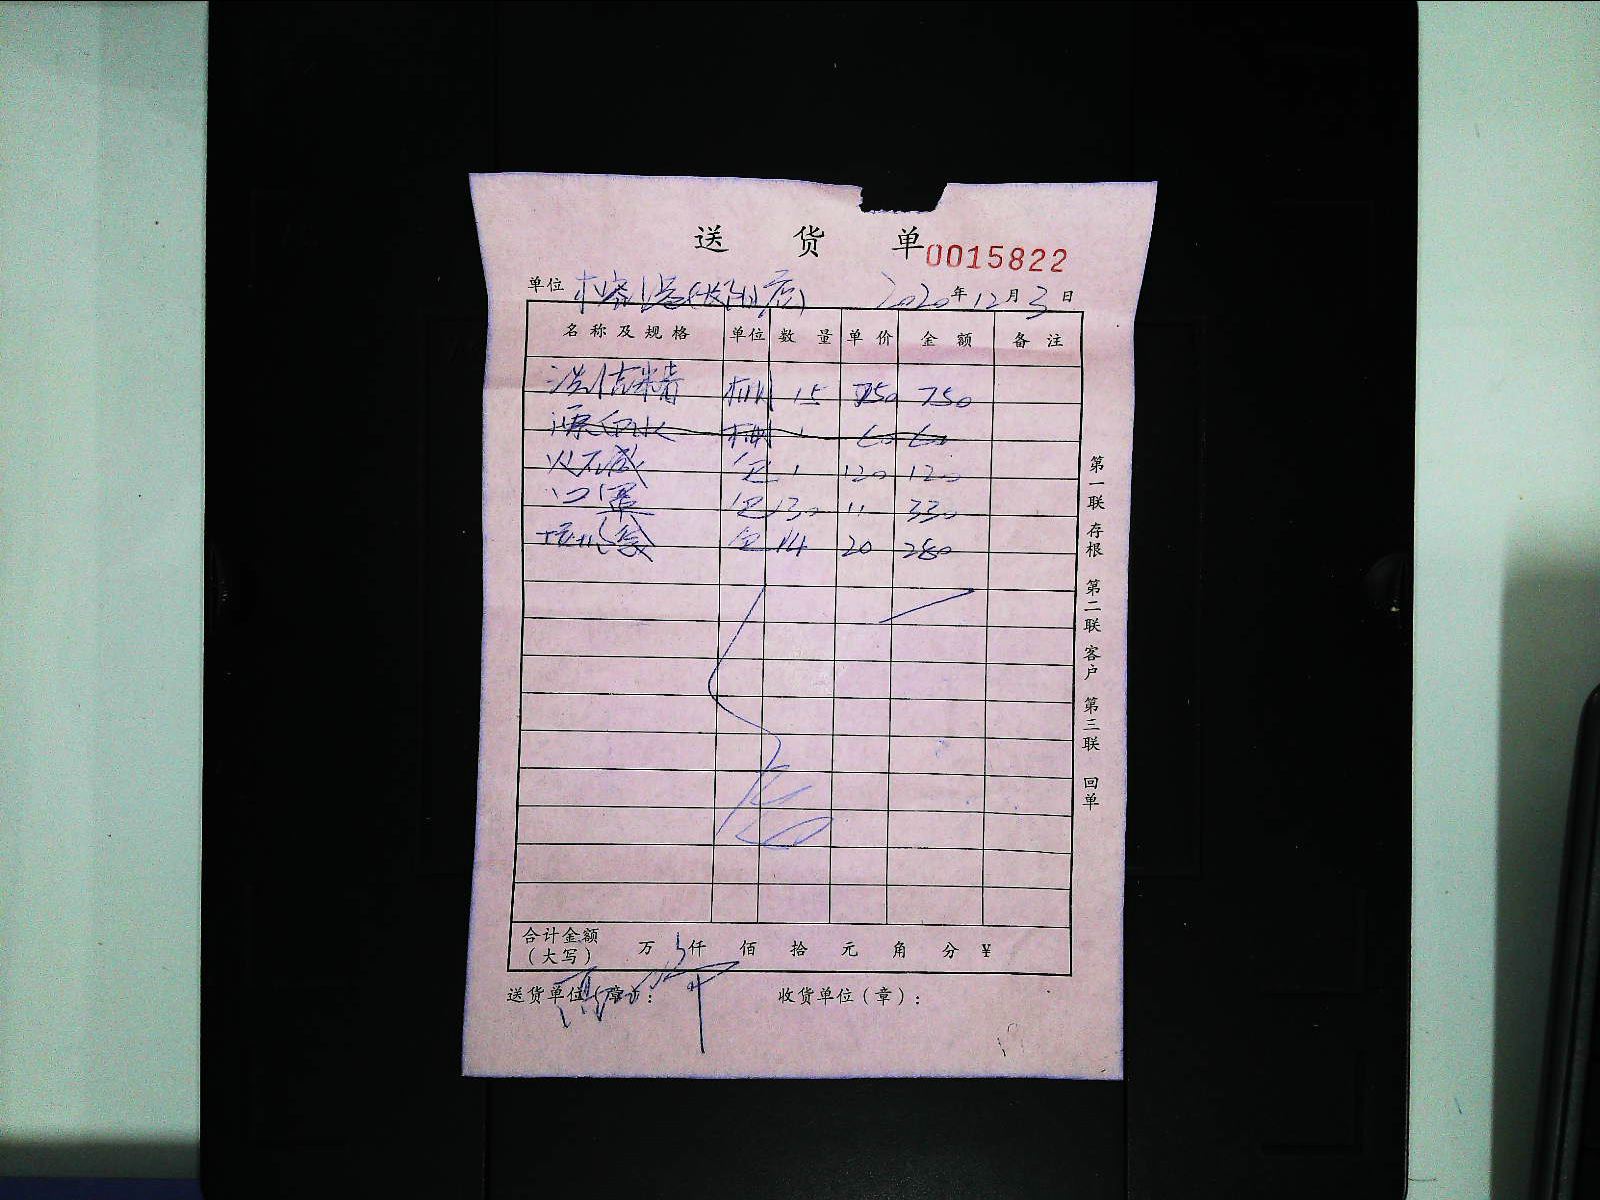 送 货 单 0015822
单位 2020年12月3日
名称及规格 单位 数量 单价 金额 备注
洗洁精 15 750
漂白水 1 60 60
包 1 120 120
口罩 包 30 11 330
垃圾袋 包 14 20 280
第一联 存根 第二联 客户 第三联 回单
合计金额（大写） 万 仟 佰 拾 元 角 分 ¥
送货单位（章）： 收货单位（章）：